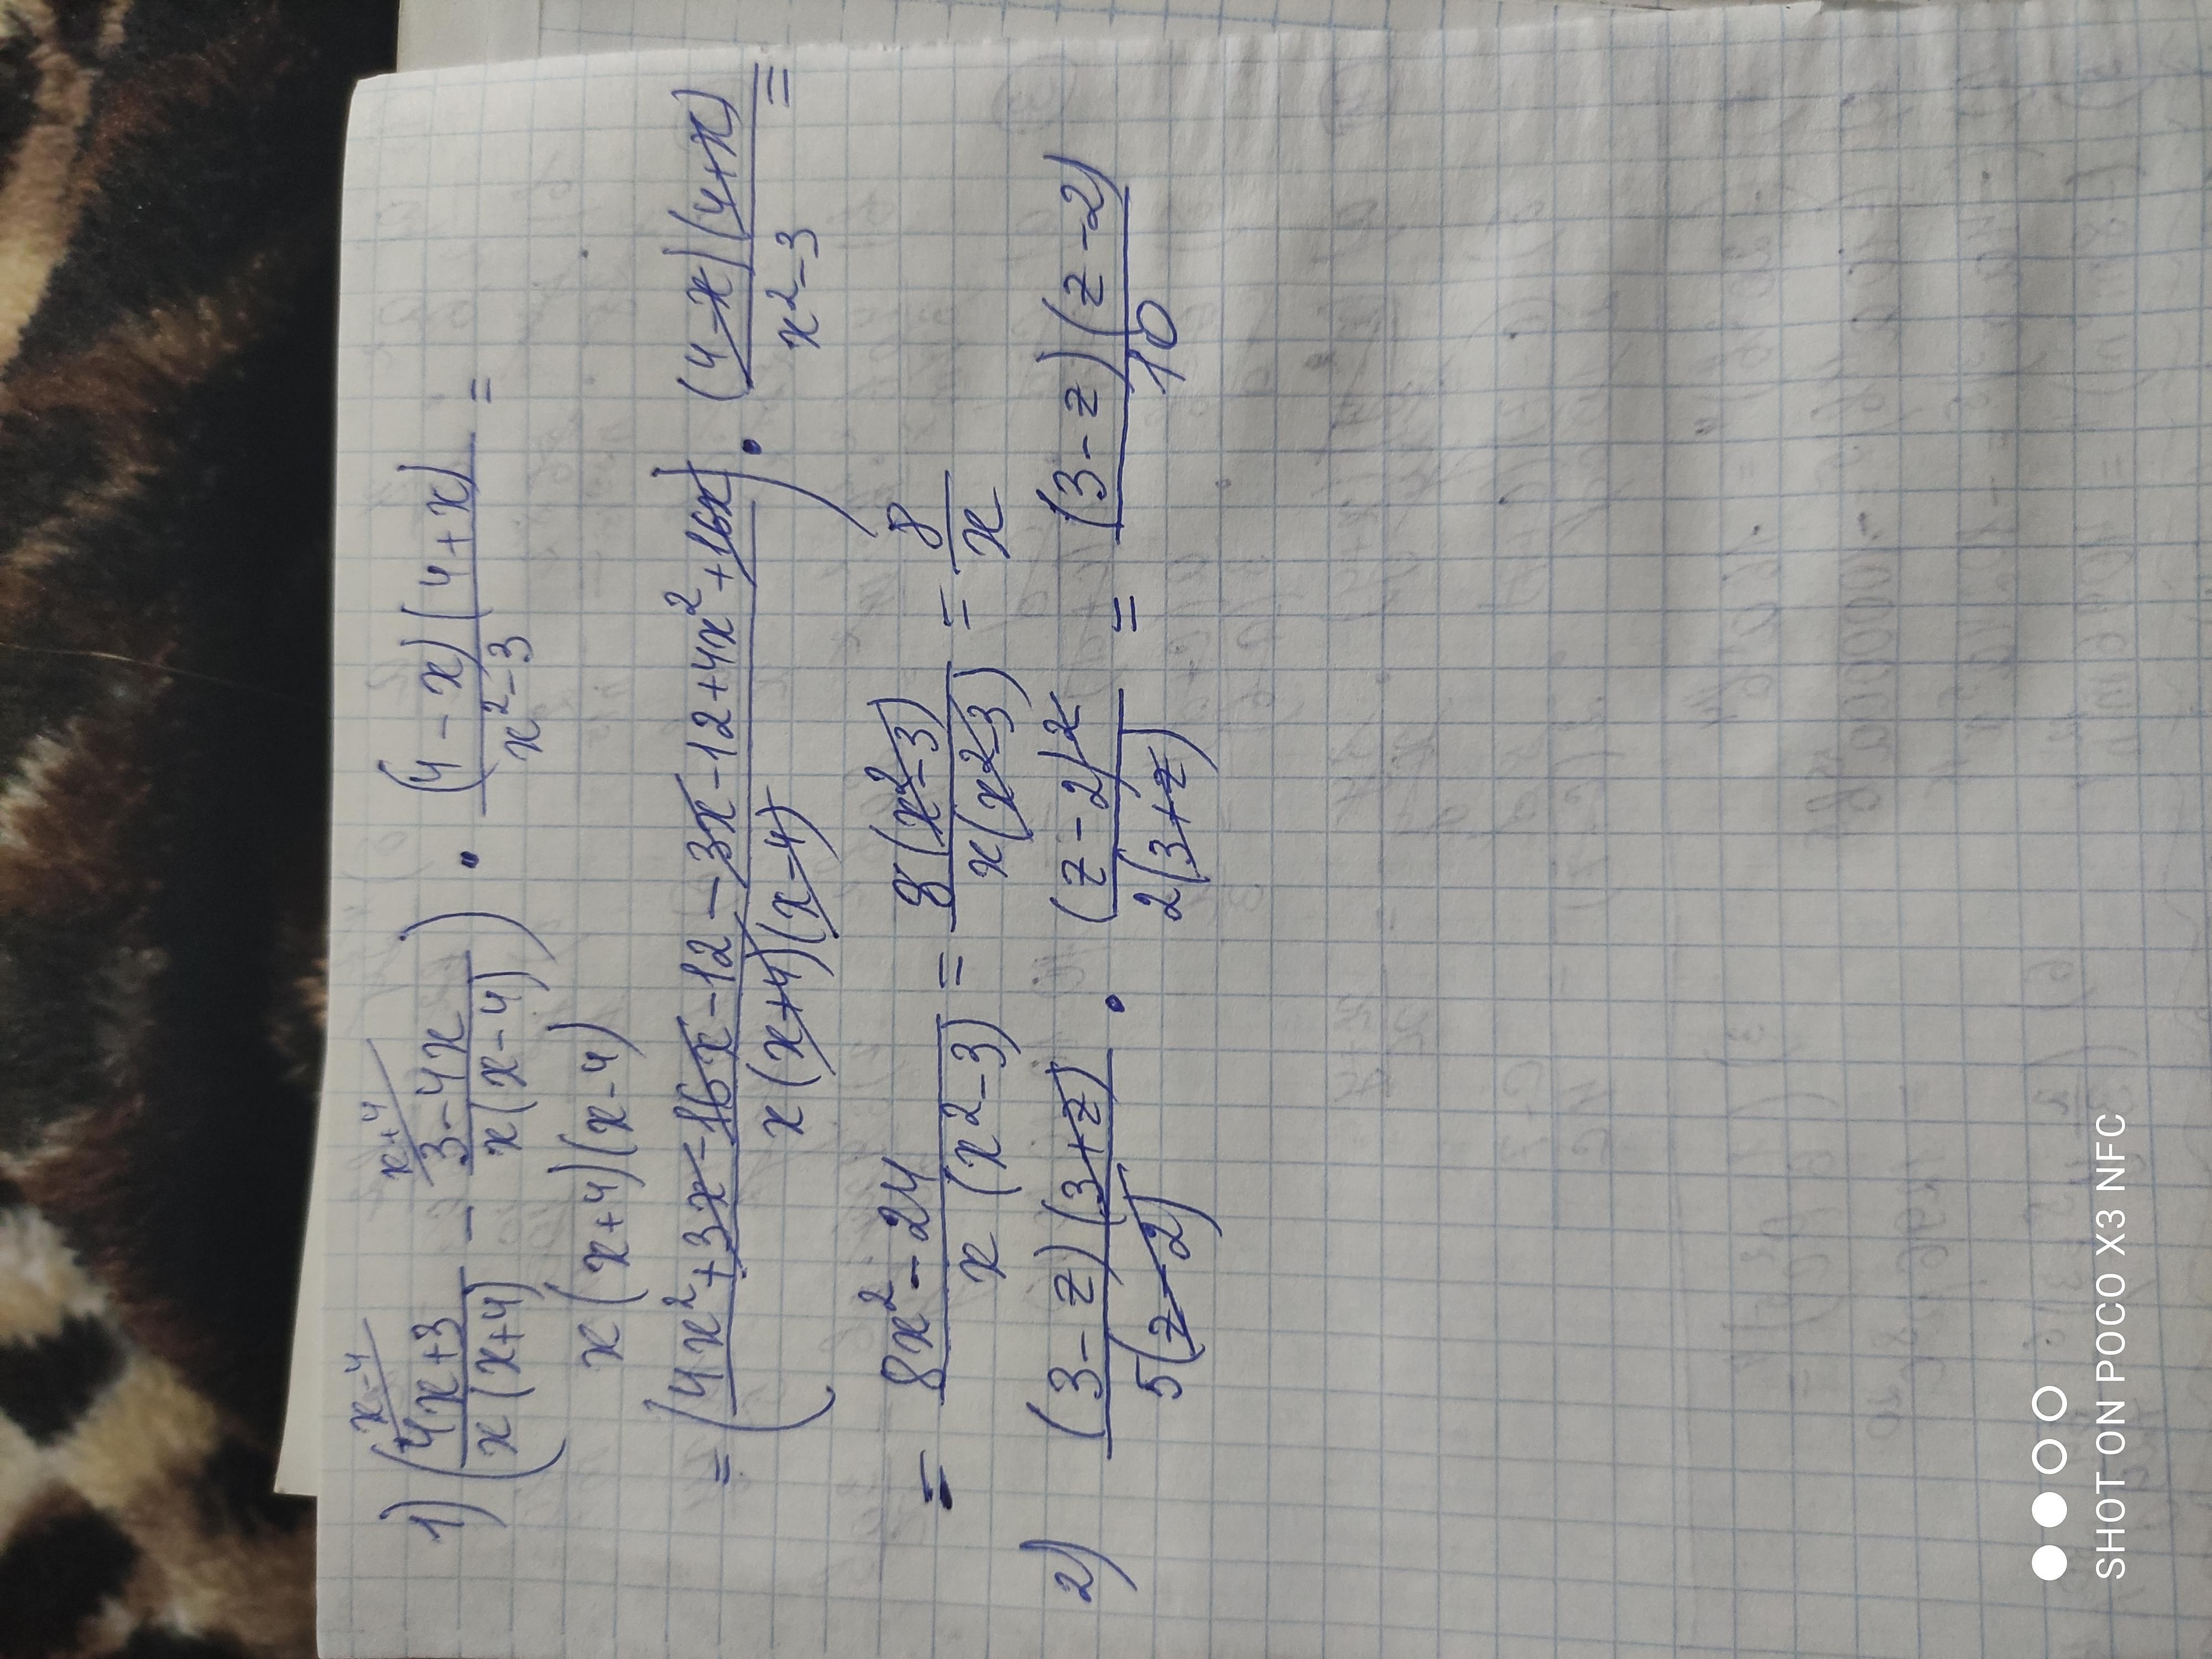 x-4 x+4
1) (4x+3 / x(x+4) - 3-4x / x(x-4)) · (4-x)(4+x) / x²-3 =
x(x+4)(x-4)
= (4x²+3x-16x-12-3x-12+4x²+16x / x(x+4)(x-4)) · (4-x)(4+x) / x²-3 =
= 8x²-24 / x(x²-3) = 8(x²-3) / x(x²-3) = 8 / x
2) (3-z)(3+z) / 5(z-2) · (z-2)² / 2(3+z) = (3-z)(z-2) / 10
SHOT ON POCO X3 NFC